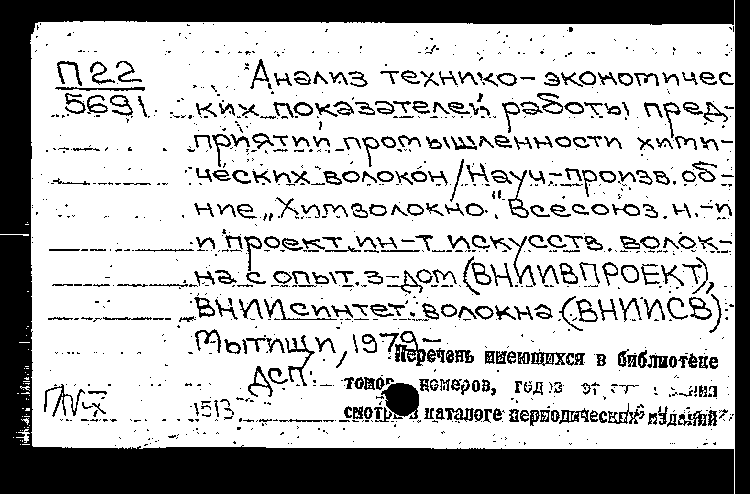 П22
5691
Анализ технико-экономичес
ких показателей работы пред-
приятий промышленности хими-
ческих волокон/Науч.-произв. об-
ние „Химволокно“. Всесоюз. н.-и
и проект. ин-т искусств. волок-
на с опыт. з-дом (ВНИИВПРОЕКТ),
ВНИИсинтет. волокна (ВНИИСВ).
Мытищи, 1979-
ДСП.
Перечень имеющихся в библиотеке
томов, номеров, годов
смотри в каталоге периодических изданий
1513